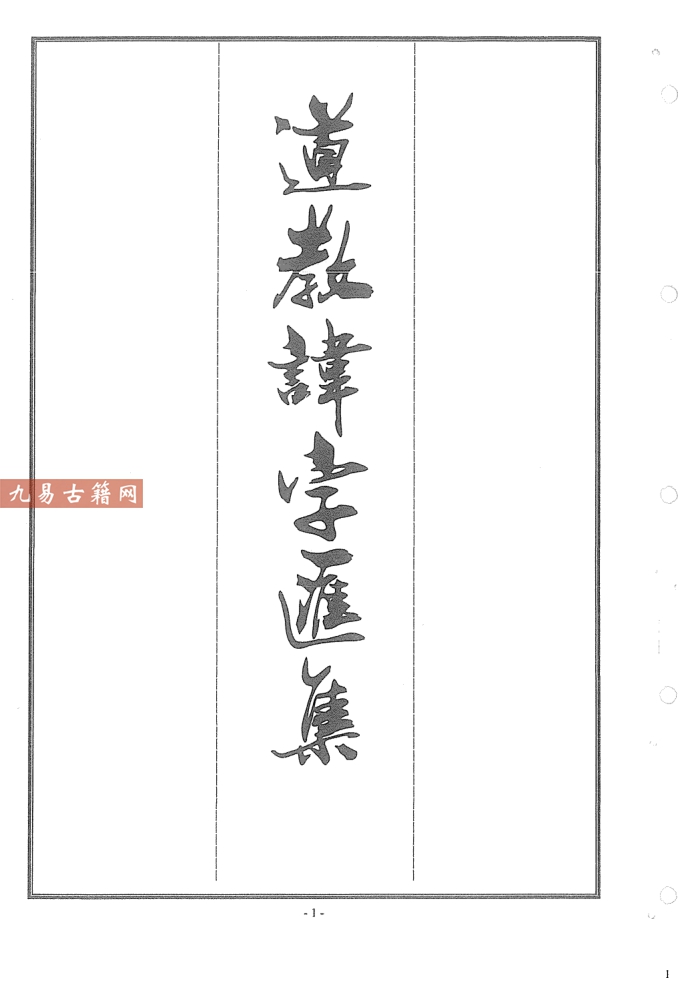 道教諱字匯集
九易古籍网
- 1 -
I